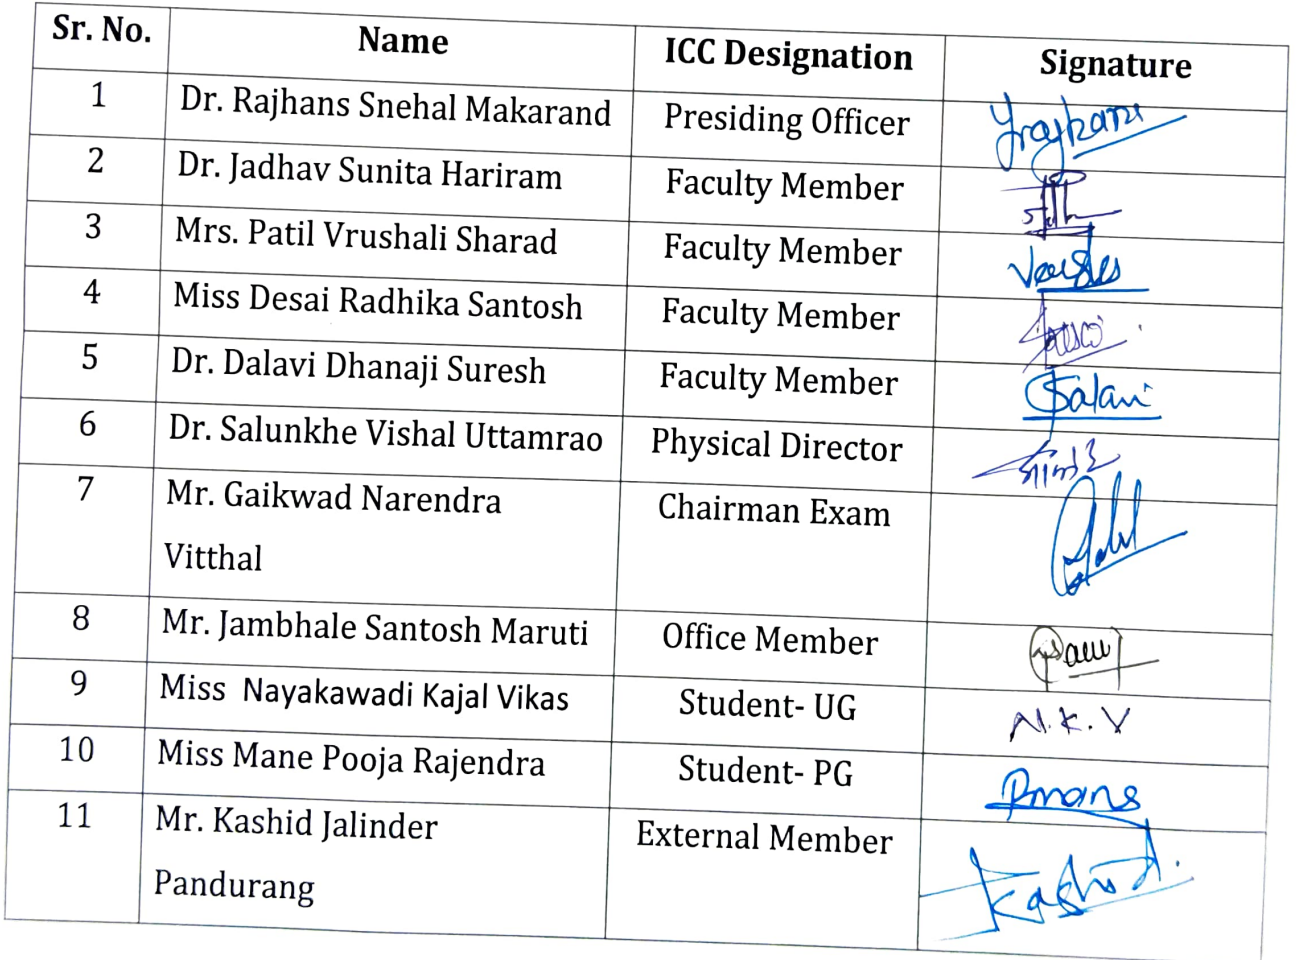 Sr. No. Name ICC Designation Signature
1 Dr. Rajhans Snehal Makarand Presiding Officer
2 Dr. Jadhav Sunita Hariram Faculty Member
3 Mrs. Patil Vrushali Sharad Faculty Member
4 Miss Desai Radhika Santosh Faculty Member
5 Dr. Dalavi Dhanaji Suresh Faculty Member
6 Dr. Salunkhe Vishal Uttamrao Physical Director
7 Mr. Gaikwad Narendra Chairman Exam
Vitthal
8 Mr. Jambhale Santosh Maruti Office Member
9 Miss Nayakawadi Kajal Vikas Student- UG N.K.V
10 Miss Mane Pooja Rajendra Student- PG
11 Mr. Kashid Jalinder External Member
Pandurang